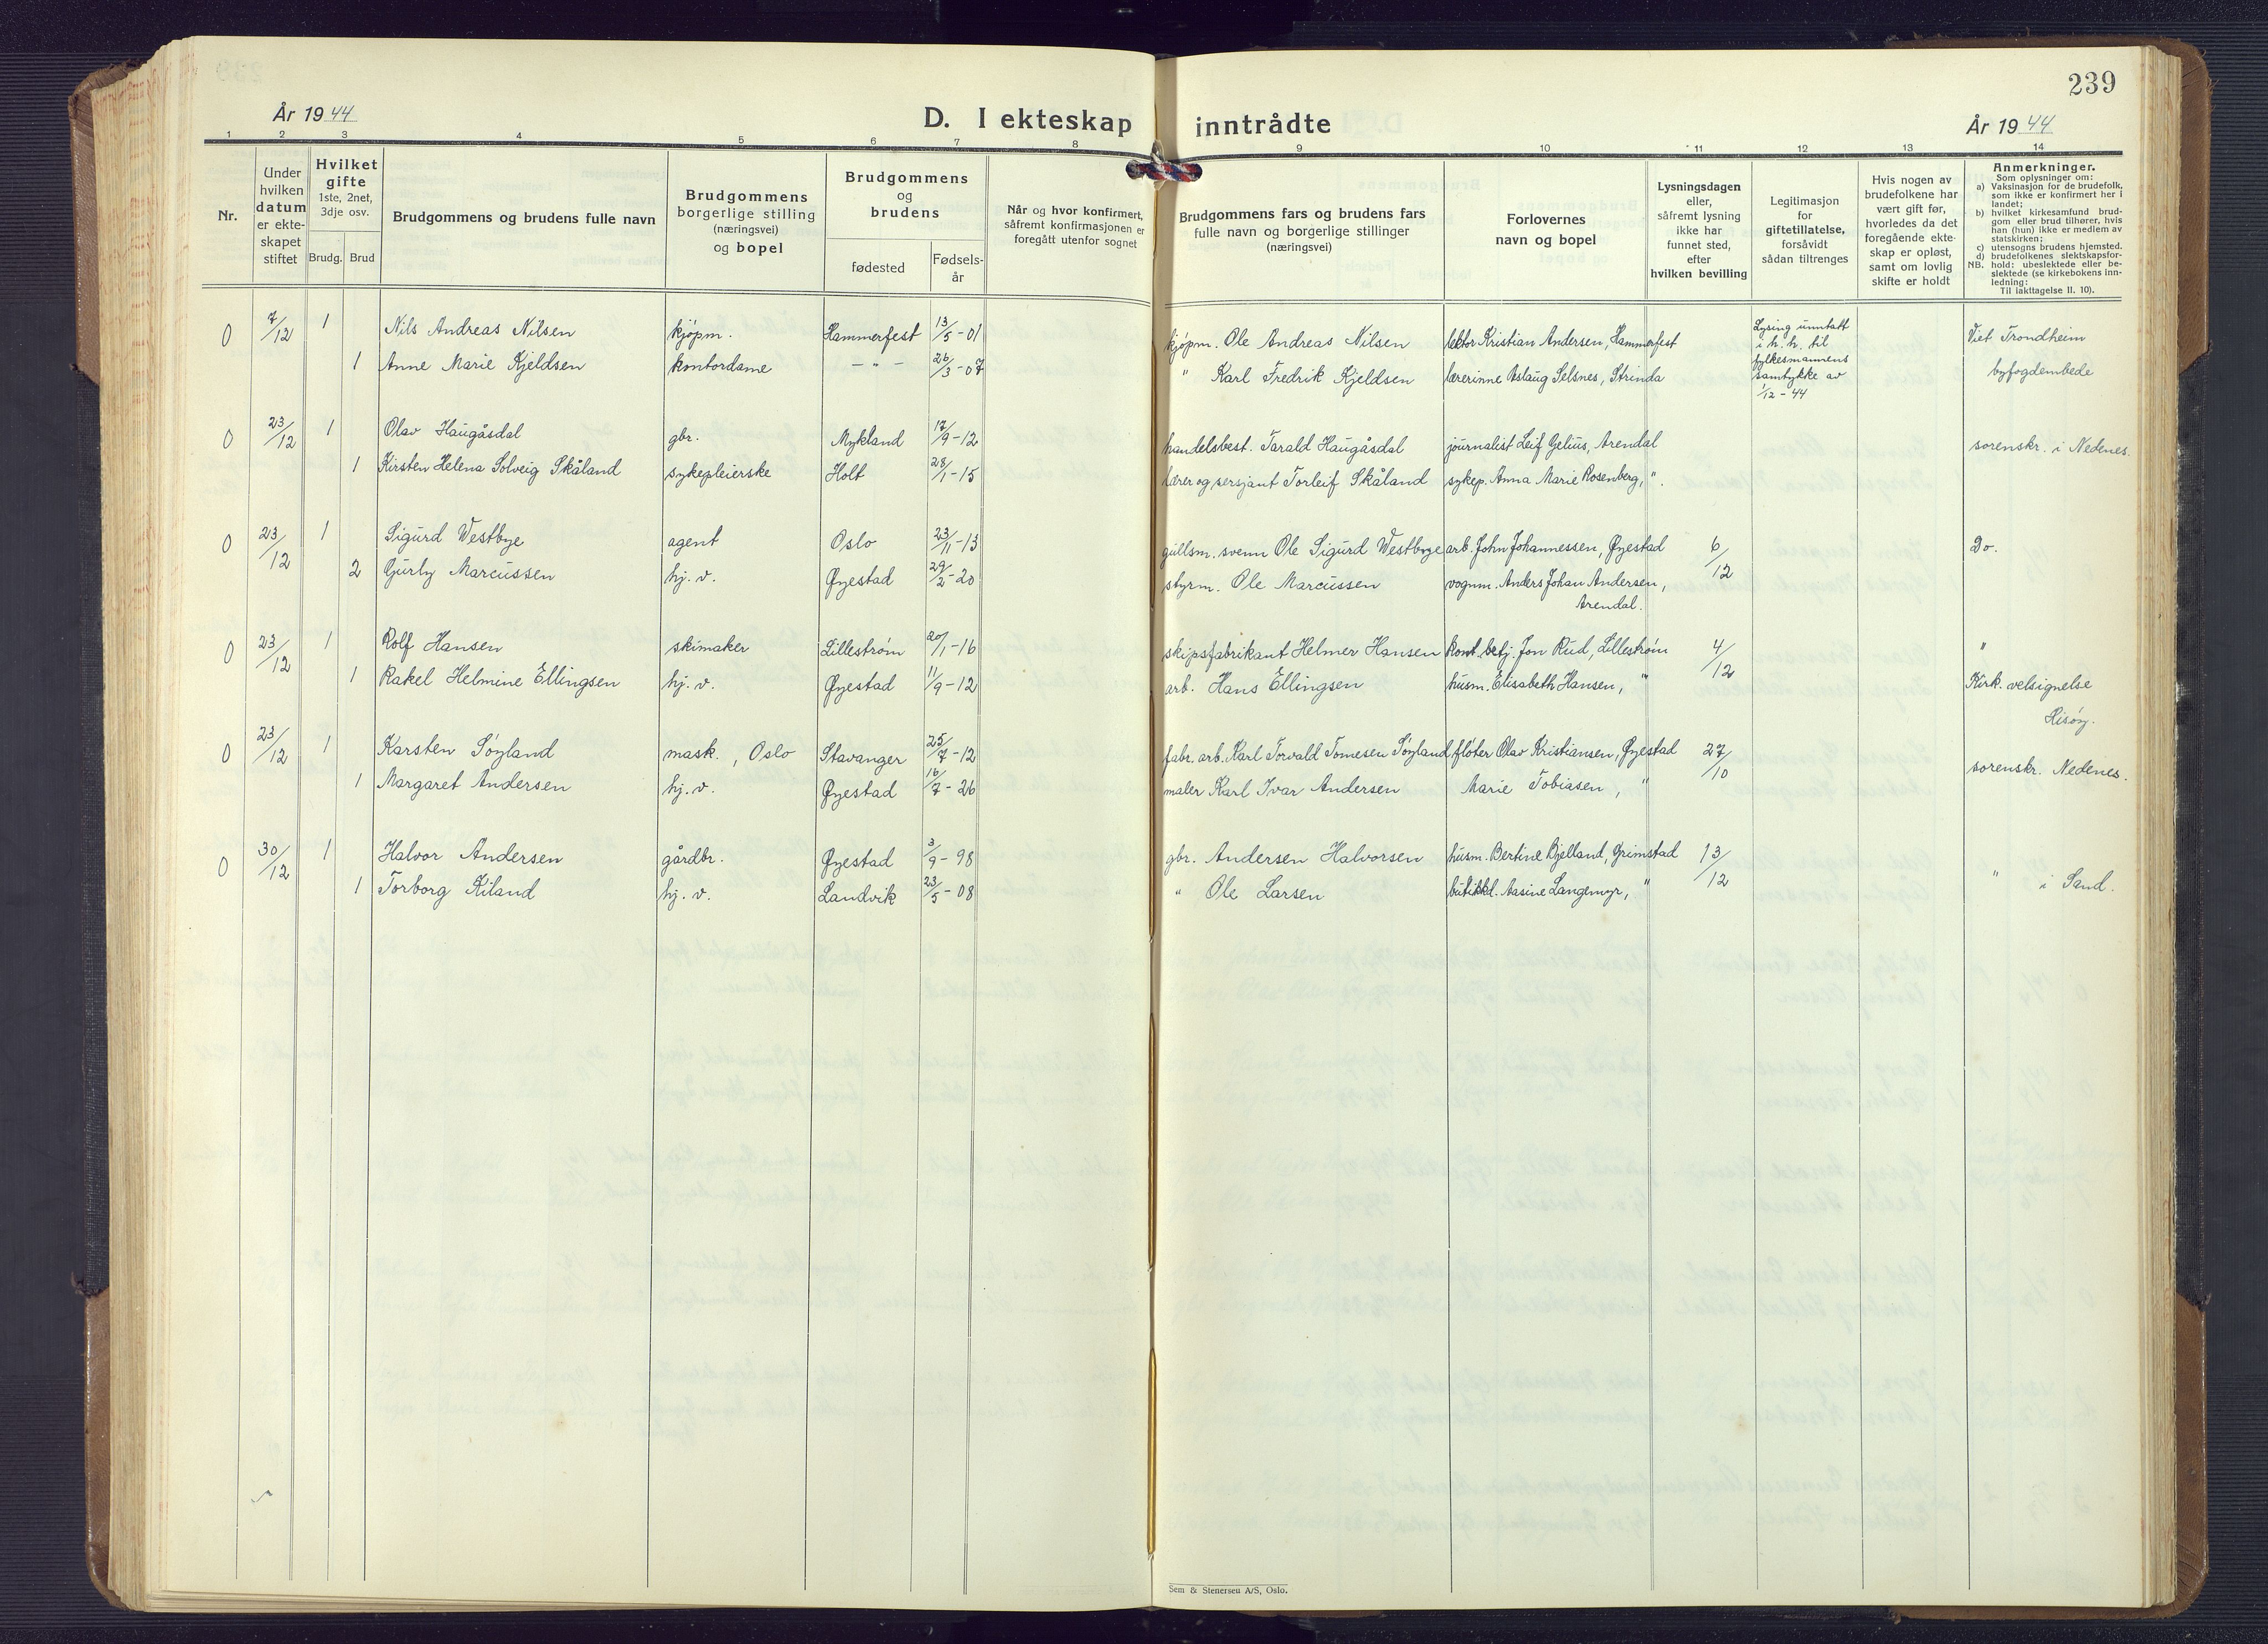 239
År 1944
D. I ekteskap inntrådte
År 1944
1 2 3 4 5 6 7 8 9 10 11 12 13 14
Nr.
Under
hvilken
datum
er ekte-
skapet
stiftet
Hvilket
gifte
1ste, 2net,
3dje osv.
Brudg. Brud
Brudgommens og brudens fulle navn
Brudgommens
borgerlige stilling
(næringsvei)
og bopel
Brudgommens
og
brudens
fødested
Fødsels-
år
Når og hvor konfirmert,
såfremt konfirmasjonen er
foregått utenfor sognet
Brudgommens fars og brudens fars
fulle navn og borgerlige stillinger
(næringsvei)
Forlovernes
navn og bopel
Lysningsdagen
eller,
såfremt lysning
ikke har
funnet sted,
efter
hvilken bevilling
Legitimasjon
for
giftetillatelse,
forsåvidt
sådan tiltrenges
Hvis nogen av
brudefolkene har
vært gift før,
hvorledes da det
foregående ekte-
skap er opløst,
samt om lovlig
skifte er holdt
Anmerkninger.
Som oplysninger om:
a) Vaksinasjon for de brudefolk,
som ikke er konfirmert her i
landet;
b) hvilket kirkesamfund brud-
gom eller brud tilhører, hvis
han (hun) ikke er medlem av
statskirken;
c) utensogns brudens hjemsted.
d) brudefolkenes slektskapsfor-
NB. hold: ubeslektede eller be-
slektede (se kirkebokens inn-
ledning:
Til iakttagelse II. 10).
0 7/12 1 Nils Andreas Nilsen kjøpm. Hammerfest 13/5-01 kjøpm. Ole Andreas Nilsen lektor Kristian Andersen, Hammerfest Lysing unntatt i h. h. til fylkesmannens samtykke av 1/12-44 Viet Trondheim
1 Anne Marie Kjeldsen kontordame - " - 26/3-07 " Karl Fredrik Kjeldsen lærerinne Aslaug Selsnes, Strinda byfogdembede
0 23/12 1 Olav Haugåsdal gbr. Mykland 17/9-12 handelsbest. Tarald Haugåsdal journalist Leif Gelius, Arendal sorenskr. i Nedenes.
1 Kirsten Helena Solveig Skåland sykepleierske Holt 28/1-15 lærer og sersjant Torleif Skåland sykep. Anna Marie Rosenberg, ".
0 23/12 1 Sigurd Westbye agent Oslo 23/11-13 gullsm. svenn Ole Sigurd Westbye arb. John Johannessen, Øyestad 6/12 Do.
2 Gurly Marcussen hj. v. Øyestad 29/2-20 styrm. Ole Marcussen vognm. Anders Johan Andersen,
Arendal.
0 23/12 1 Rolf Hansen skimaker Lillestrøm 20/1-16 skipsfabrikant Helmer Hansen kont. betj. Jon Rud, Lillestrøm 4/12 "
1 Rakel Helmine Ellingsen hj. v. Øyestad 11/9-12 arb. Hans Ellingsen husm. Elisabeth Hansen, " Kirk. velsignelse
Hisøy.
0 23/12 1 Karsten Søyland mask., Oslo Stavanger 25/7-12 fabr. arb. Karl Torvald Tomesen Søyland fløter Olav Kristiansen, Øyestad 27/10 sorenskr. Nedenes.
1 Margaret Andersen hj. v. Øyestad 16/7-26 maler Karl Ivar Andersen Marie Tobiasen, "
0 30/12 1 Halvor Andersen gårdbr. Øyestad 3/9-98 gbr. Andersen Halvorsen husm. Bertine Bjelland, Grimstad 13/12
1 Torborg Kiland hj. v. Landvik 23/5-08 " Ole Larsen butikkd. Aasine Langemyr, " " i Sand.
Sem & Stenersen A/S, Oslo.